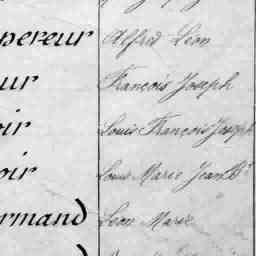 pereur Alfred Léon
ur François Joseph
oir Louis François Joseph
oir Louis Marie Jean Bte
ormand) Léon Marie